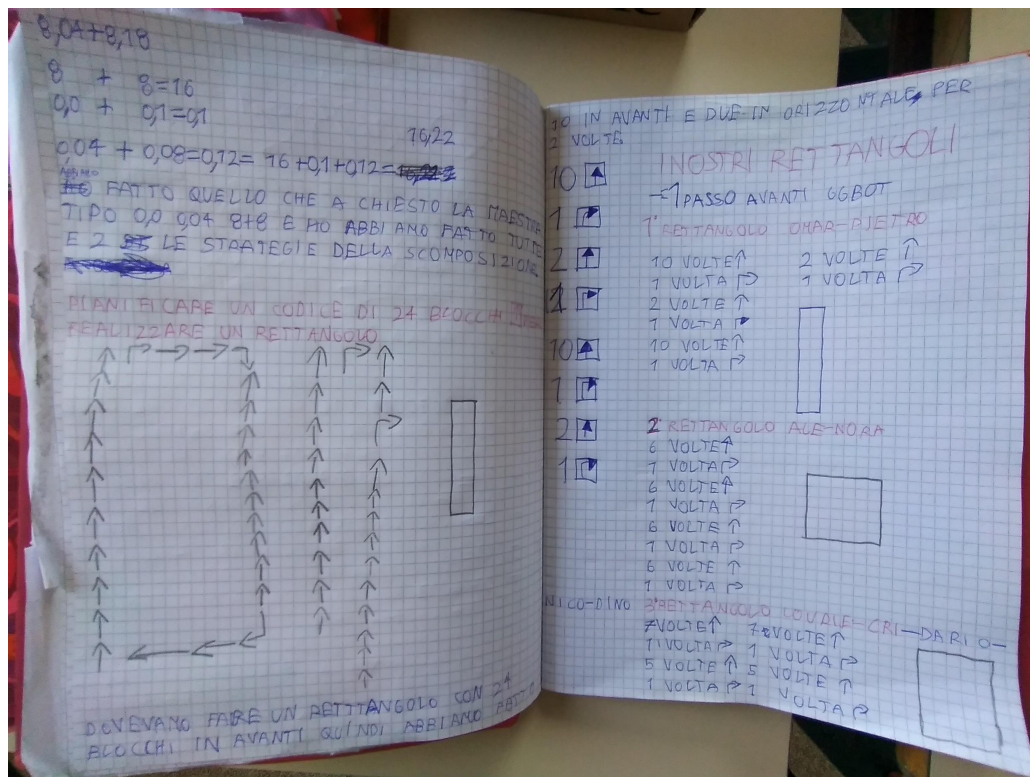 8,04+8,18
8 + 8=16
0,0 + 0,1=0,1
16,22
0,04 + 0,08=0,12= 16+0,1+0,12=
ABBIAMO
FATTO QUELLO CHE A CHIESTO LA MAESTRA
TIPO 0,0 0,04 8+8 E NO ABBIAMO FATTO TUTTE
E 2 LE STRATEGIE DELLA SCOMPOSIZIONE
PIANIFICARE UN CODICE DI 24 BLOCCHI
REALIZZARE UN RETTANGOLO
DOVEVAMO FARE UN RETTTANGOLO CON 24
BLOCCHI IN AVANTI QUINDI ABBIAMO
10 IN AVANTI E DUE IN ORIZZONTALE, PER
2 VOLTE
I NOSTRI RETTANGOLI
10 ↑
1 ↱
2 ↑
1 ↱
10 ↑
1 ↱
2 ↑
1 ↱
1 PASSO AVANTI GGBOT
1° RETTANGOLO OMAR-PIETRO
10 VOLTE ↑ 2 VOLTE ↑
1 VOLTA ↱ 1 VOLTA ↱
2 VOLTE ↑
1 VOLTA ↱
10 VOLTE ↑
1 VOLTA ↱
2° RETTANGOLO ALE-NORA
6 VOLTE ↑
1 VOLTA ↱
6 VOLTE ↑
1 VOLTA ↱
6 VOLTE ↑
1 VOLTA ↱
6 VOLTE ↑
1 VOLTA ↱
NICO-DINO 3° RETTANGOLO CRI-DARIO-
7 VOLTE ↑ 7 VOLTE ↑
1 VOLTA ↱ 1 VOLTA ↱
5 VOLTE ↑ 5 VOLTE ↑
1 VOLTA ↱ 1 VOLTA ↱